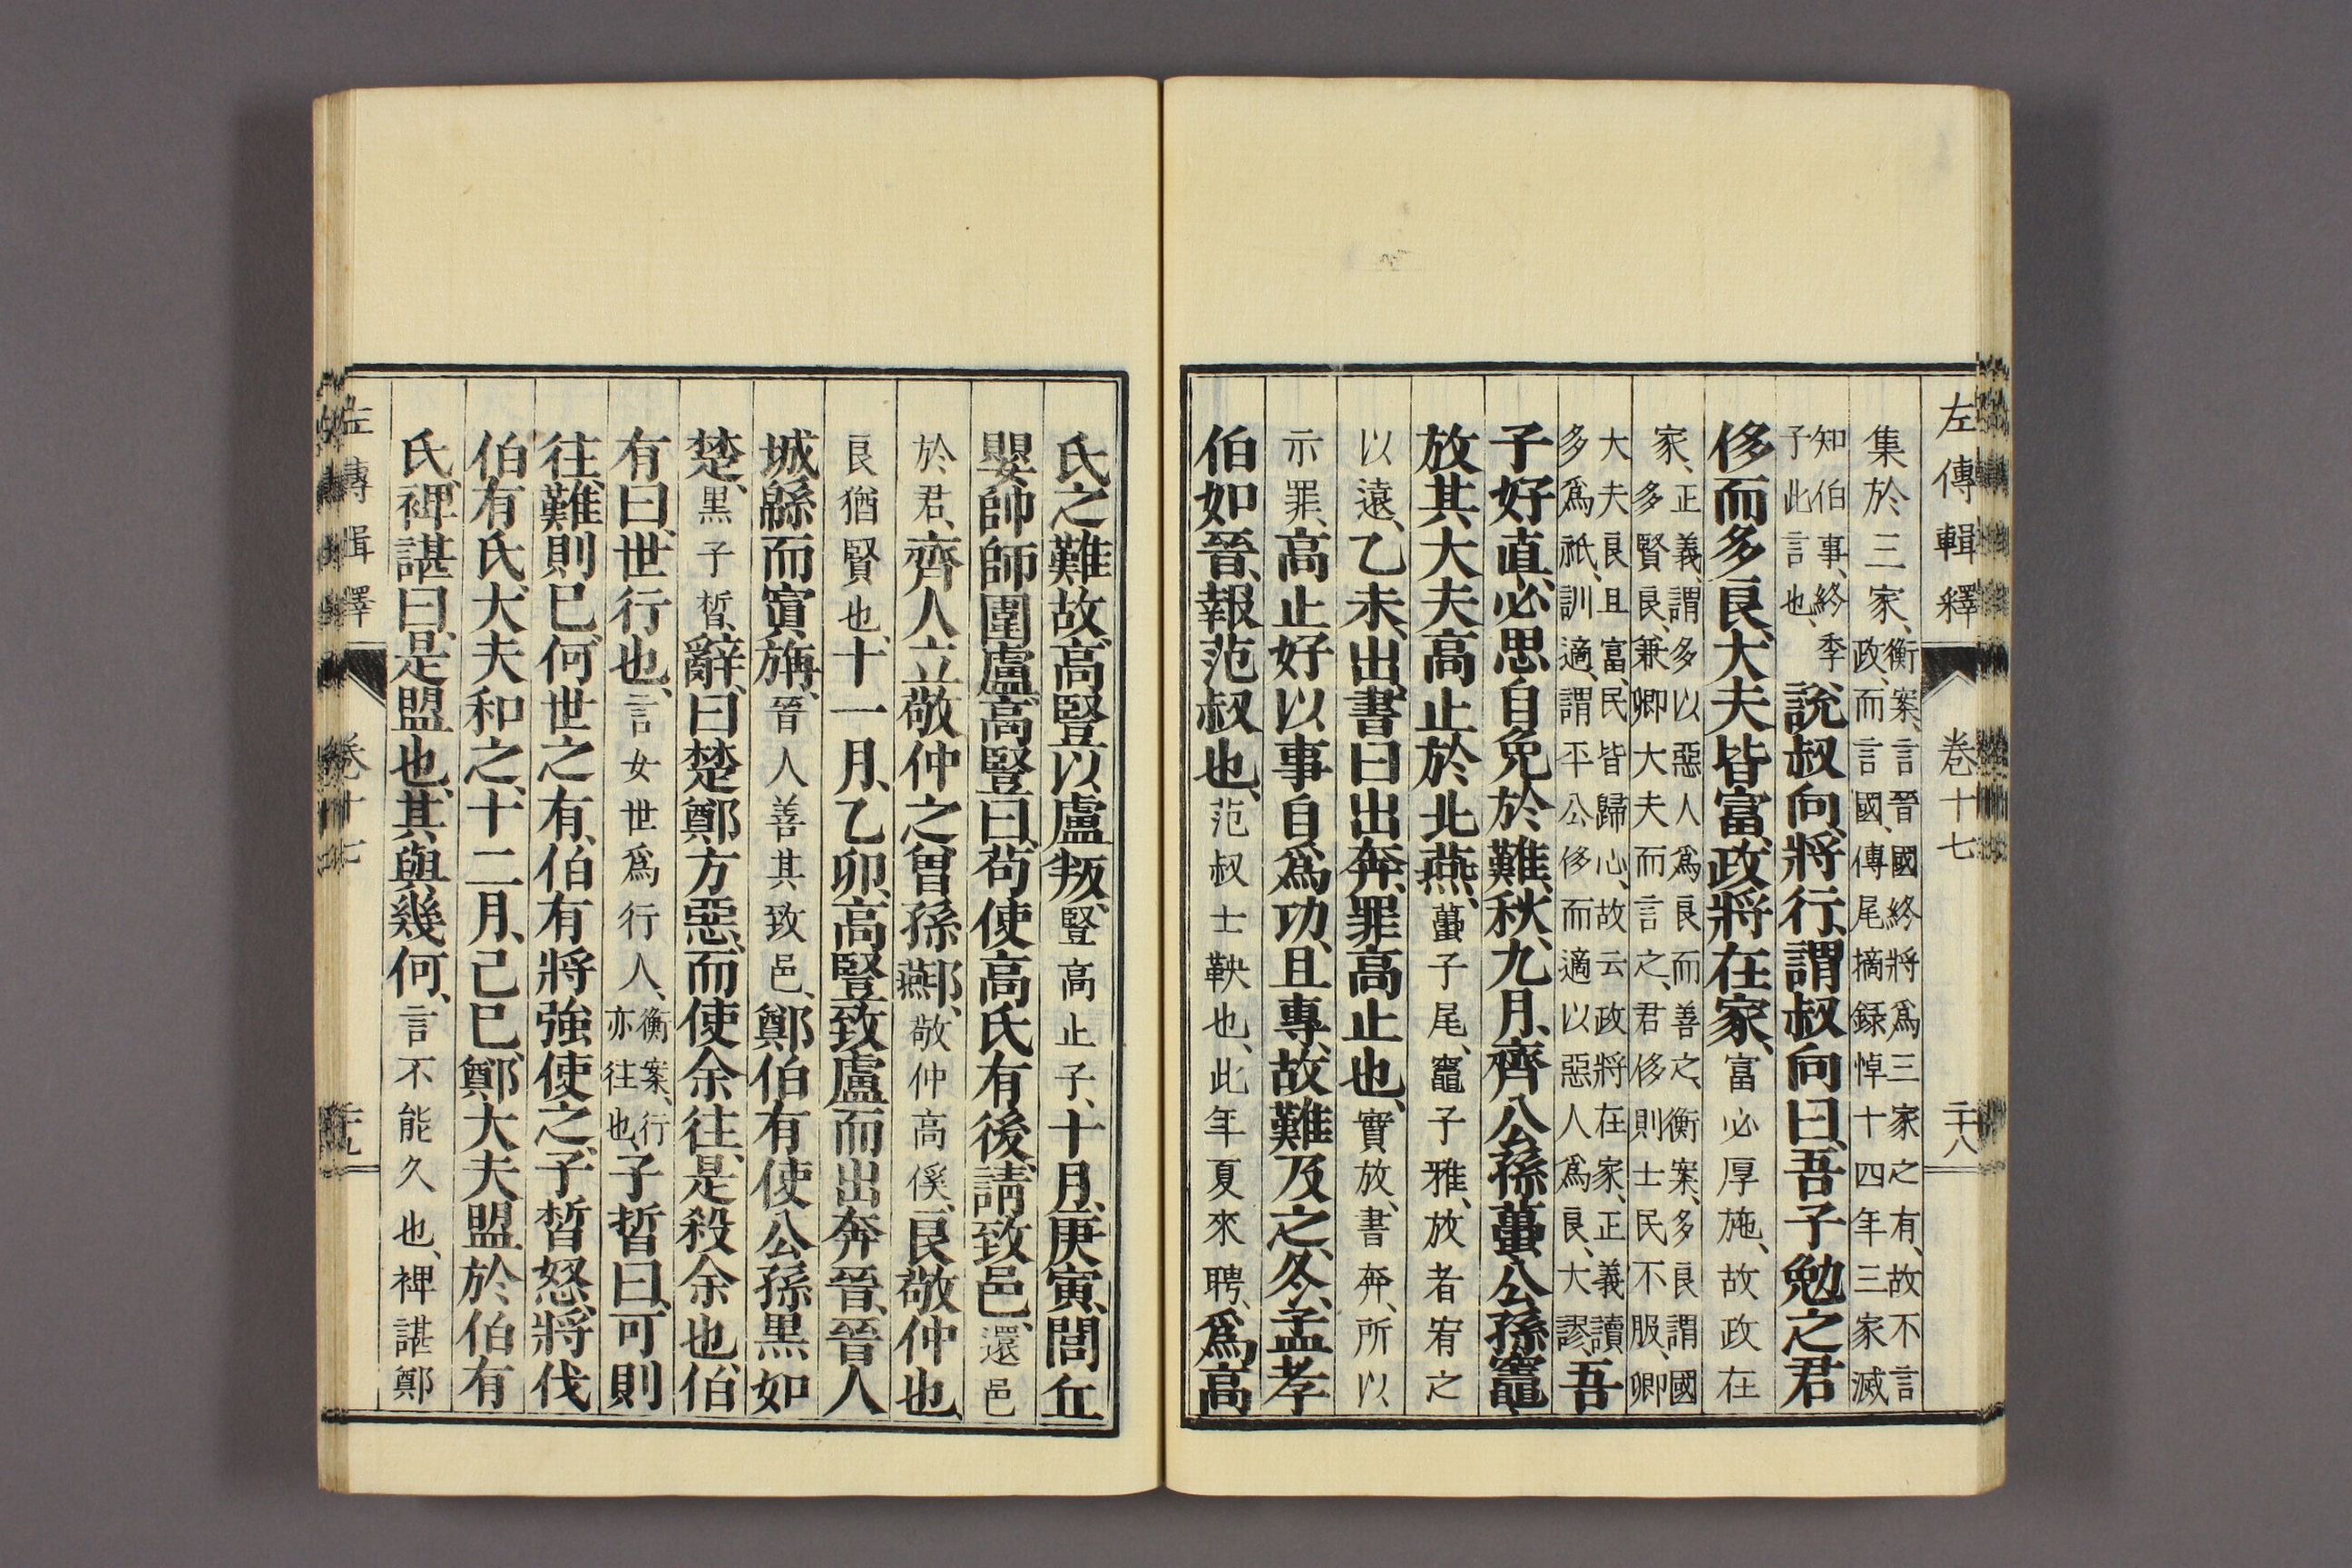 左傳輯釋　卷十七　二十八
集於三家、衡案、言晉國終將爲三家之有、故不言政、而言國、傳尾摘録悼十四年三家滅
知伯事、終季子此言也、說叔向、將行、謂叔向曰、吾子勉之、君
侈而多良、大夫皆富、政將在家、富必厚施、故政在
家、正義、謂多以惡人爲良而善之、衡案、多良謂國多賢良、兼卿大夫而言之、君侈則士民不服、卿
大夫良且富、民皆歸心、故云政將在家、正義讀多爲祇、訓適、謂平公侈而適以惡人爲良、大謬、吾
子好直、必思自免於難、秋、九月、齊公孫蠆、公孫竈、
放其大夫高止於北燕、蠆子尾、竈子雅、放者宥之
以遠、乙未、出、書曰出奔、罪高止也、實放、書奔、所以
示罪、高止好以事自爲功、且專、故難及之、冬、孟孝
伯如晉、報范叔也、范叔士鞅也、此年夏來聘、爲高
氏之難故、高豎以盧叛、豎高止子、十月、庚寅、閭丘
嬰帥師圍盧、高豎曰、苟使高氏有後、請致邑、還邑
於君、齊人立敬仲之曾孫酀、敬仲高傒、良敬仲也、
良猶賢也、十一月、乙卯、高豎致盧而出奔晉、晉人
城緜而寘旃、晉人善其致邑、鄭伯有使公孫黑如
楚、黑子晳、辭、曰、楚鄭方惡、而使余往、是殺余也、伯
有曰、世行也、言女世爲行人、衡案、行亦往也、子晳曰、可則
往、難則已、何世之有、伯有將強使之、子晳怒、將伐
伯有氏、大夫和之、十二月、己巳、鄭大夫盟於伯有
氏、裨諶曰、是盟也、其與幾何、言不能久也、裨諶鄭
左傳輯釋　卷十七　二十九